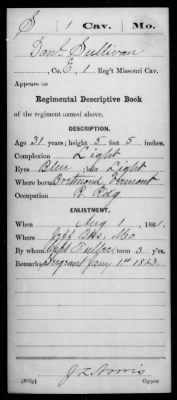 S 1 Cav. Mo.
Danl Sullivan
, Co. E, 1 Reg't Missouri Cav.
Appears on
Regimental Descriptive Book
of the regiment named above.
DESCRIPTION.
Age 21 years; height 5 feet 5 inches.
Complexion Light
Eyes Blue; hair Light
Where born Vermont
Occupation R. Rdg
ENLISTMENT.
When Aug 1, 1861.
Where Jeff. Mo
By whom Capt Fuller; term 3 y'rs.
Remarks: Sergeant Jany 1st 1863.
(383g) Copyist.